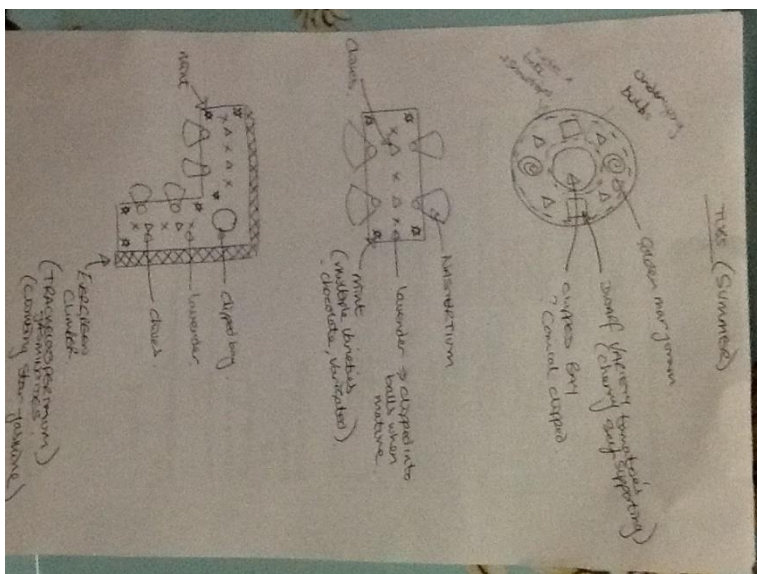 TUBS (SUMMER)
underlying
bulbs
Golden marjoram
Dwarf variety tomatoes
(cherry self supporting)
clipped BAY
? Conical clipped.
Chives.
NASTERTIUM
lavender → clipped into
balls when
mature.
mint
(multiple varieties
chocolate, varigated)
mint
clipped bay.
lavender.
chives
EVERGREEN
CLIMBER
(TRACHELOSPERMUM
JASMINOIDES)
(climbing star-jasmine)